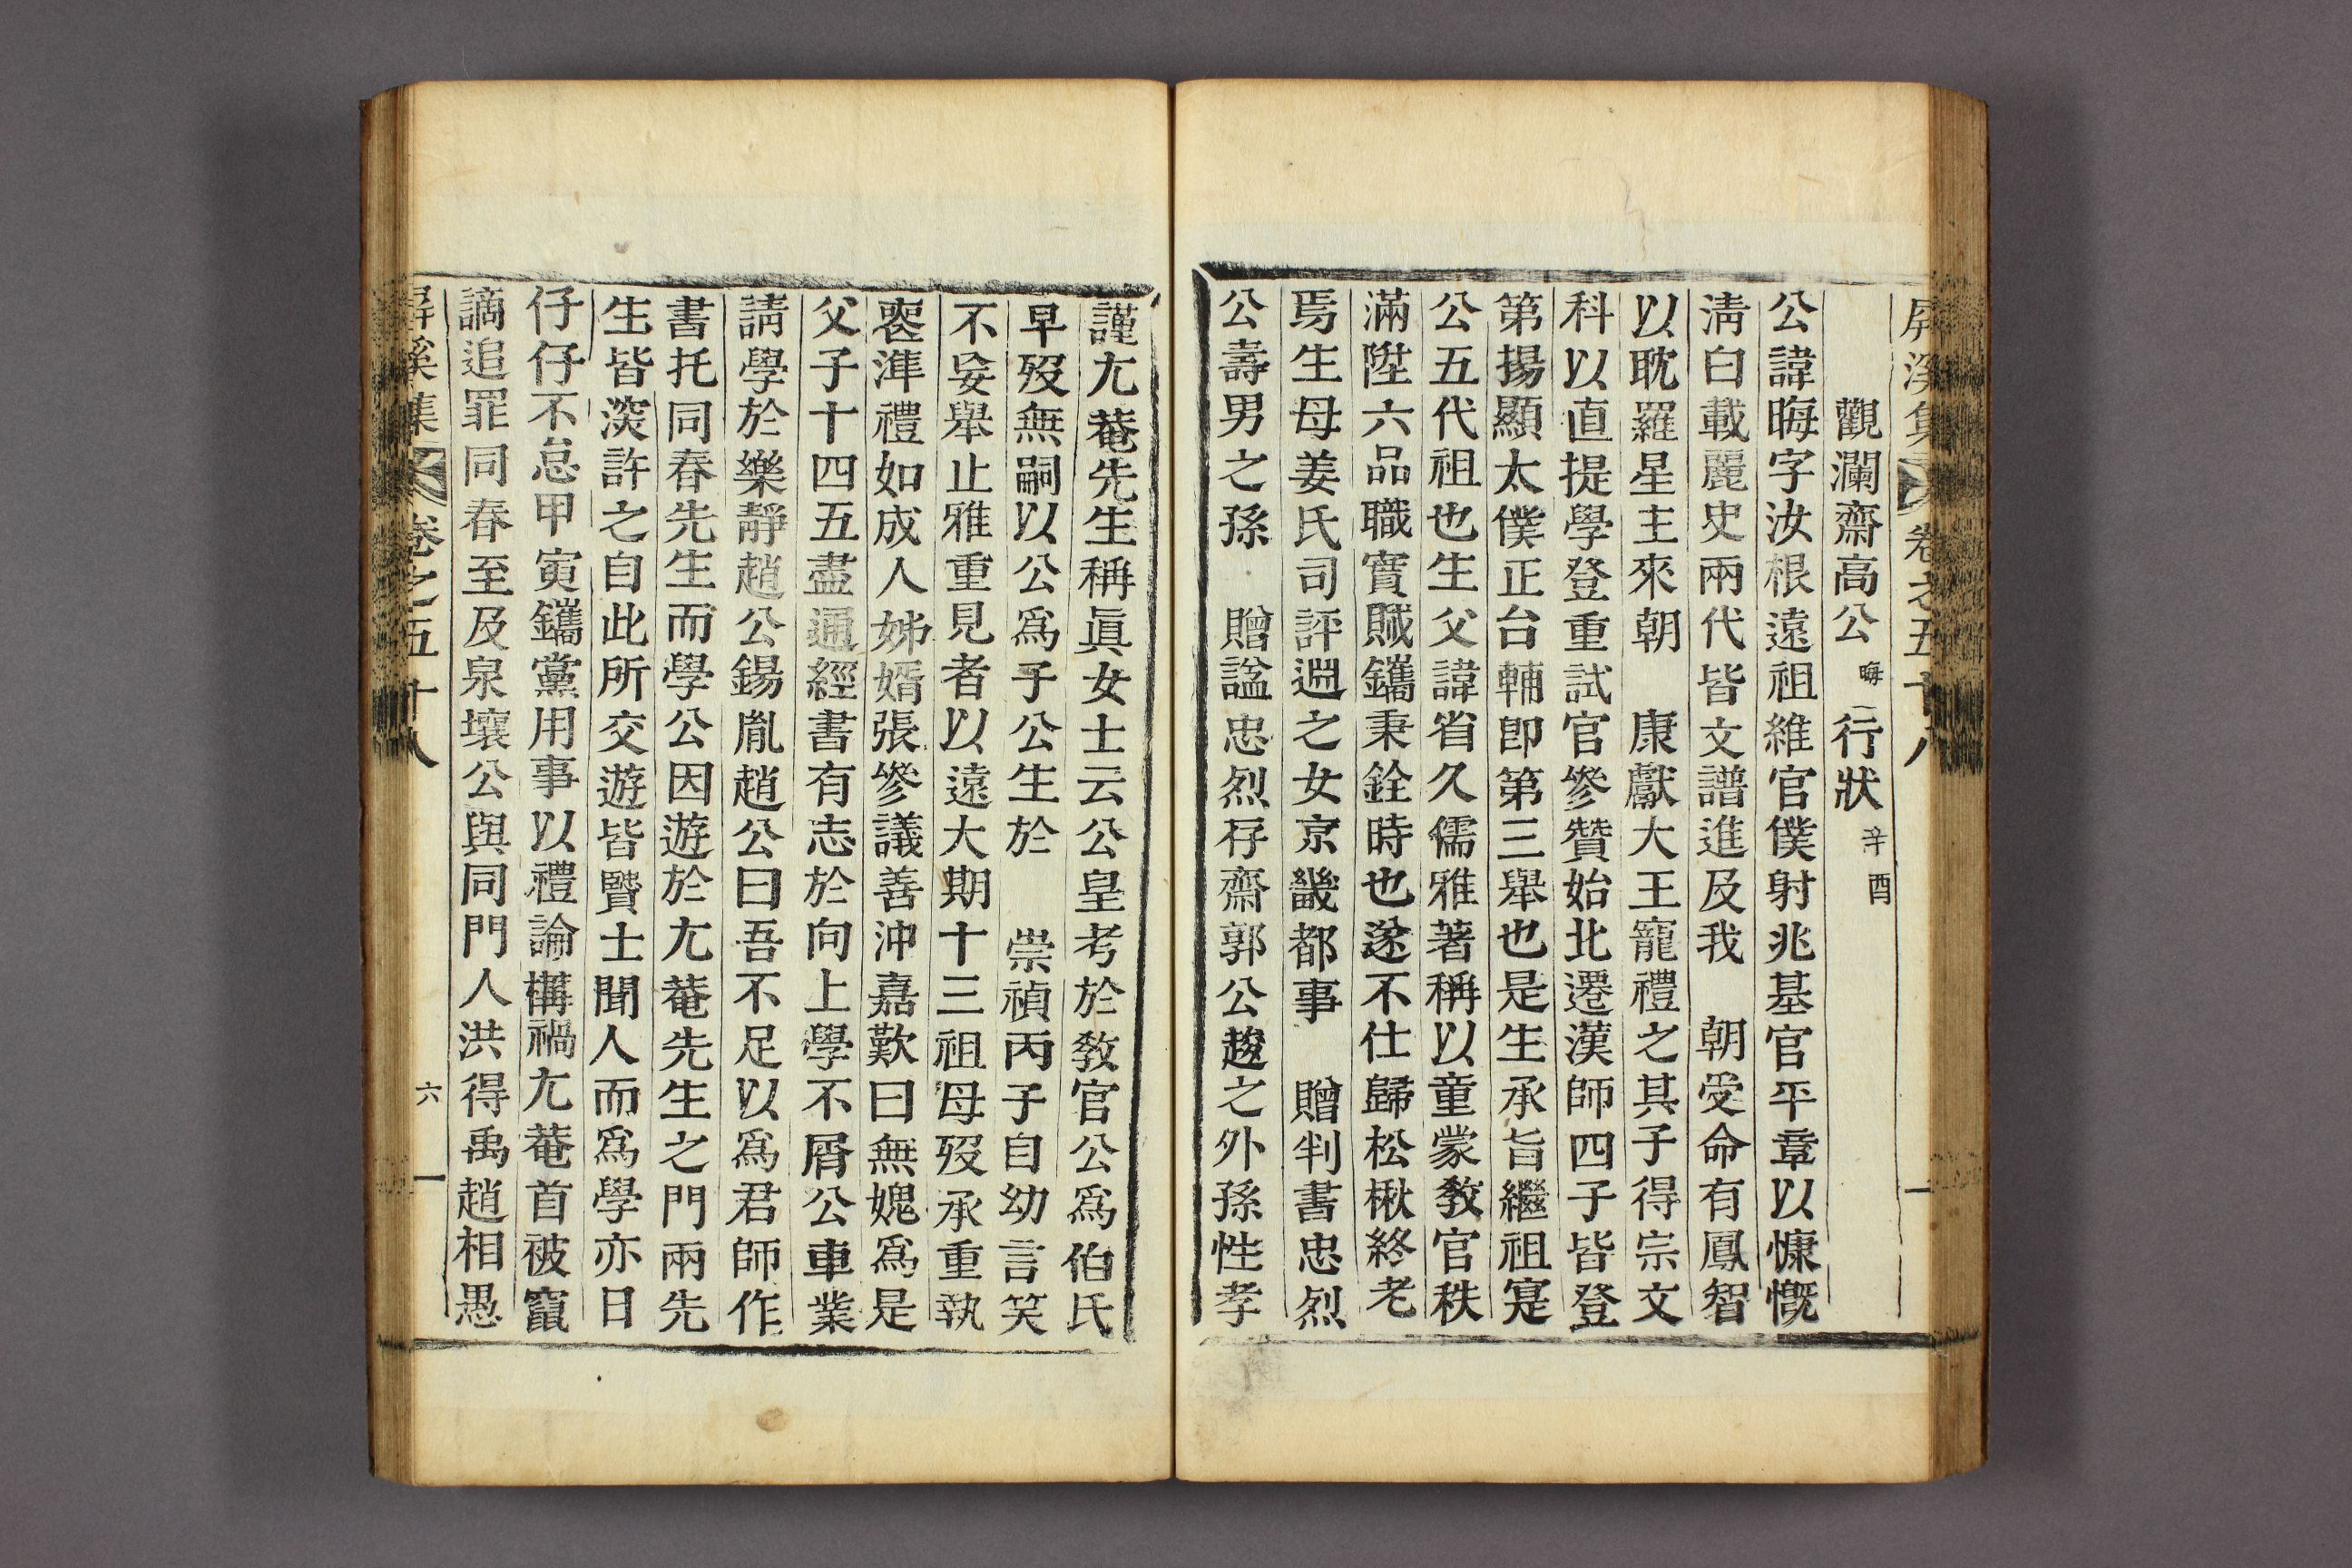 屛溪集 卷之五十八
觀瀾齋高公 晦 行狀 辛酉
公諱晦字汝根遠祖維官僕射兆基官平章以慷慨
淸白載麗史兩代皆文譜進及我 朝受命有鳳智
以耽羅星主來朝 康獻大王寵禮之其子得宗文
科以直提學登重試官參贊始北遷漢師四子皆登
第揚顯太僕正台輔卽第三舉也是生承旨繼祖寔
公五代祖也生父諱省久儒雅著稱以童蒙教官秩
滿陞六品職實賊鑴秉銓時也遂不仕歸松楸終老
焉生母姜氏司評迵之女京畿都事 贈判書忠烈
公壽男之孫 贈諡忠烈存齋郭公䞭之外孫性孝
謹尤菴先生稱眞女士云公皇考於教官公爲伯氏
早歿無嗣以公爲子公生於 崇禎丙子自幼言笑
不妄舉止雅重見者以遠大期十三祖母歿承重執
喪準禮如成人姊婿張參議善冲嘉歎曰無媿爲是
父子十四五盡通經書有志於向上學不屑公車業
請學於樂靜趙公錫胤趙公曰吾不足以爲君師作
書托同春先生而學公因遊於尤菴先生之門兩先
生皆深許之自此所交遊皆賢士聞人而爲學亦日
仔仔不怠甲寅鑴黨用事以禮論構禍尤菴首被竄
謫追罪同春至及泉壤公與同門人洪得禹趙相愚
屛溪集 卷之五十八 六